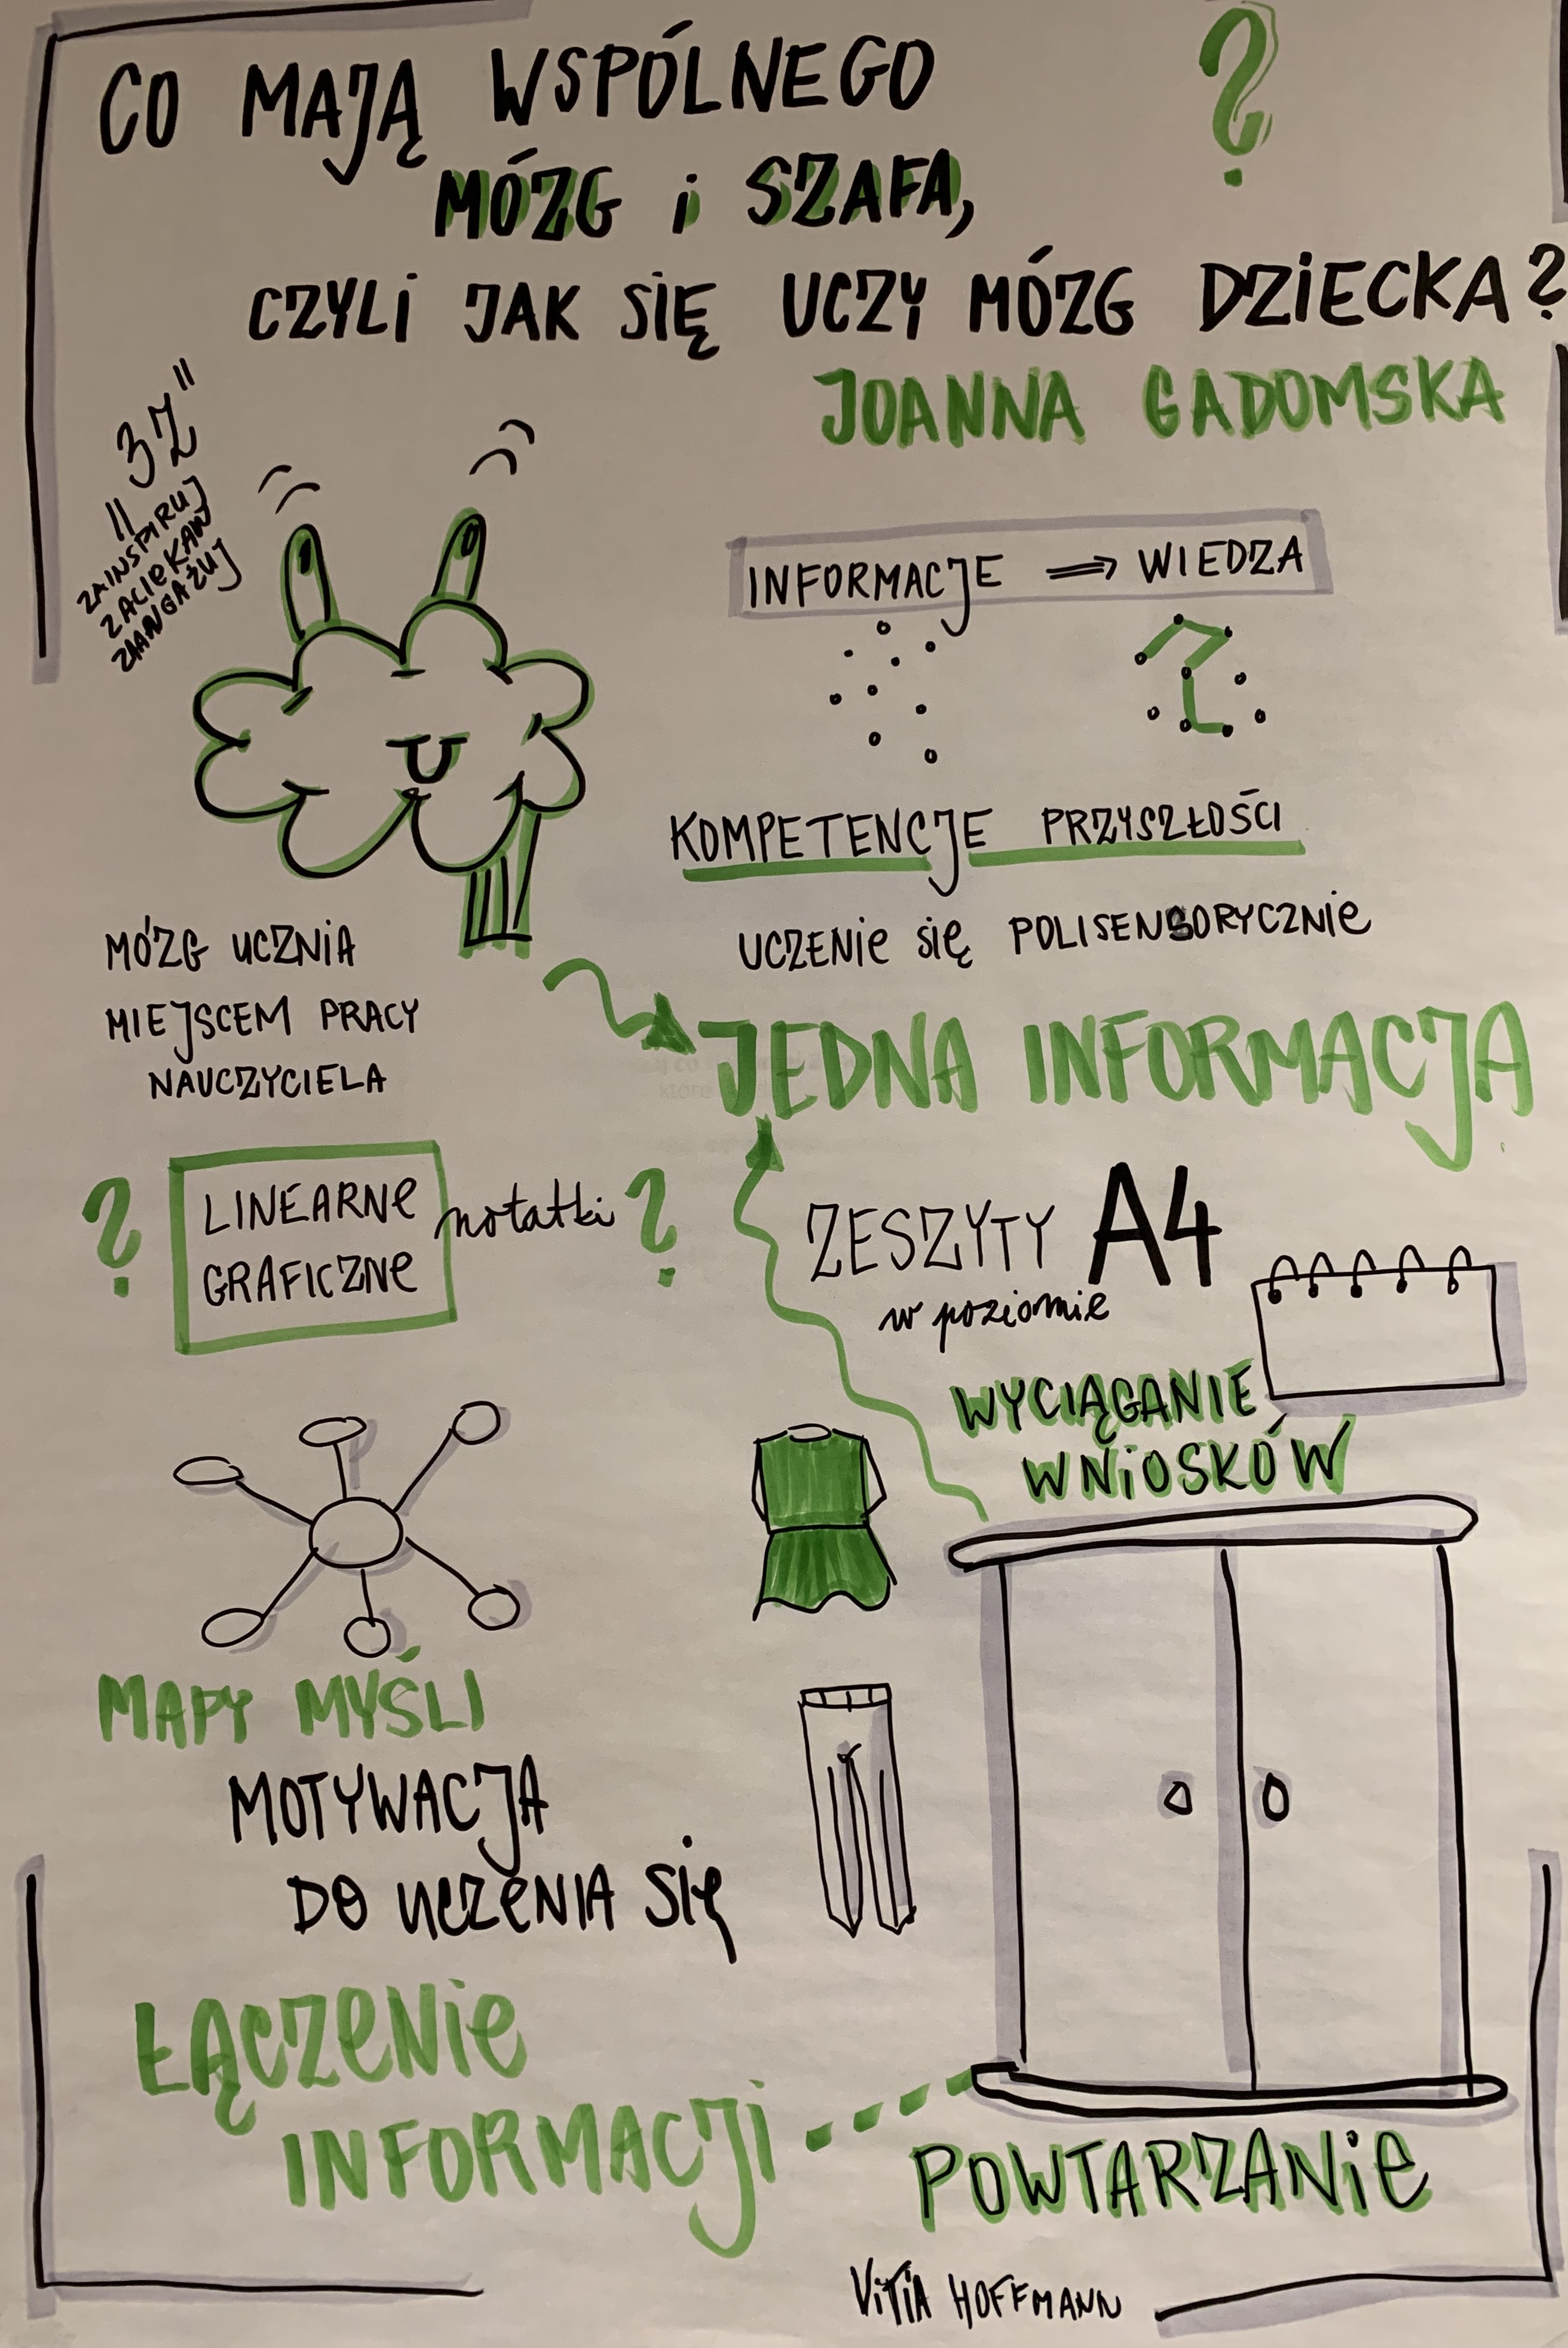 CO MAJĄ WSPÓLNEGO
?
MÓZG i SZAFA,
CZYLI JAK SIĘ UCZY MÓZG DZIECKA?
JOANNA GADOMSKA
"3Z"
=
ZAINSPIRUJ
ZACIEKAW
ZAANGAŻUJ
INFORMACJE ⇒ WIEDZA
KOMPETENCJE PRZYSZŁOŚCI
UCZENIE SIĘ POLISENSORYCZNIE
MÓZG UCZNIA
MIEJSCEM PRACY
NAUCZYCIELA
JEDNA INFORMACJA
? LINEARNE notatki ?
GRAFICZNE
ZESZYTY A4
w poziomie
WYCIĄGANIE
WNIOSKÓW
MAPY MYŚLI
MOTYWACJA
DO UCZENIA SIĘ
ŁĄCZENIE
INFORMACJI
POWTARZANIE
VITIA HOFFMANN